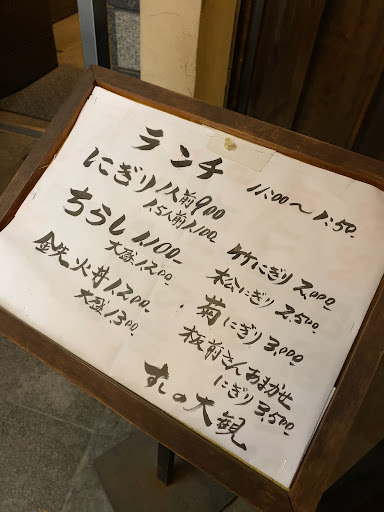 ランチ 11:00〜1:50
にぎり 1人前 900
1.5人前 1,100
ちらし 1,100
大盛 1,200
鉄火丼 1,200
大盛 1,300
竹にぎり 2,000
松にぎり 2,500
菊にぎり 3,000
板前さんおまかせ
にぎり 3,500
すしの大観